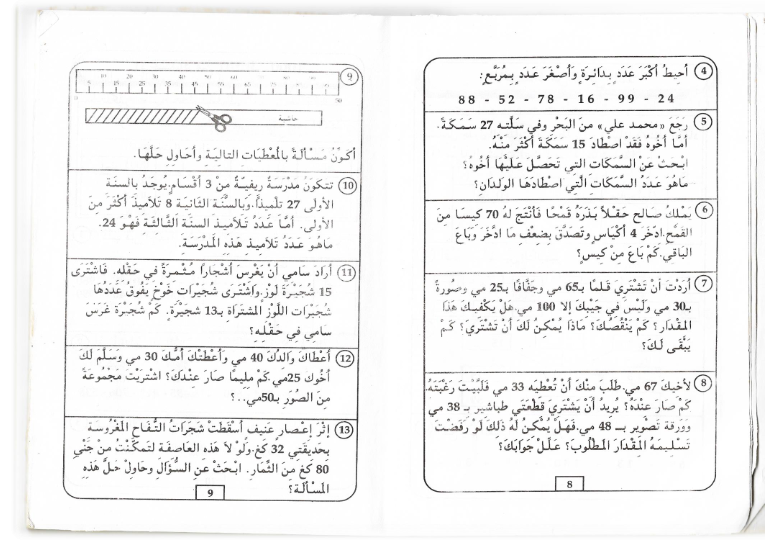 4 أحيط أكبر عدد بدائرة وأصغر عدد بمربع:
88 - 52 - 78 - 16 - 99 - 24
5 رجع «محمد علي» من البحر وفي سلته 27 سمكة.
أما أخوه فقد اصطاد 15 سمكة أكثر منه.
ابحث عن السمكات التي تحصل عليها أخوه؟
ما هو عدد السمكات التي اصطادها الولدان؟
6 يملك صالح حقلا بذره قمحا فأنتج له 70 كيسا من
القمح. ادخر 4 أكياس وتصدق بضعف ما ادخر وباع
الباقي. كم باع من كيس؟
7 أردت أن تشتري قلما بـ65 مي وجفافا بـ25 مي وصورة
بـ30 مي وليس في جيبك إلا 100 مي. هل يكفيك هذا
المقدار؟ كم ينقصك؟ ماذا يمكن لك أن تشتري؟ كم
يبقى لك؟
8 لأخيك 67 مي. طلب منك أن تعطيه 33 مي فلبيت رغبته.
كم صار عنده؟ يريد أن يشتري قطعتي طباشير بـ 38 مي
وورقة تصوير بـ 48 مي. فهل يمكن له ذلك لو رفضت
تسليمه المقدار المطلوب؟ علل جوابك؟
8
9
حاشية
أكون مسألة بالمعطيات التالية وأحاول حلها.
10 تتكون مدرسة ريفية من 3 أقسام. يوجد بالسنة
الأولى 27 تلميذا. وبالسنة الثانية 8 تلاميذ أكثر من
الأولى. أما عدد تلاميذ السنة الثالثة فهو 24.
ما هو عدد تلاميذ هذه المدرسة.
11 أراد سامي أن يغرس أشجارا مثمرة في حقله. فاشترى
15 شجيرة لوز. واشترى شجيرات خوخ يفوق عددها
شجيرات اللوز المشتراة بـ13 شجيرة. كم شجرة غرس
سامي في حقله؟
12 أعطاك والدك 40 مي وأعطتك أمك 30 مي وسلم لك
أخوك 25مي. كم مليما صار عندك؟ اشتريت مجموعة
من الصور بـ50مي..؟
13 إثر إعصار عنيف أسقطت شجرات التفاح المغروسة
بحديقتي 32 كغ. ولو لا هذه العاصفة لتمكنت من جني
80 كغ من الثمار. ابحث عن السؤال وحاول حل هذه
المسألة؟
9